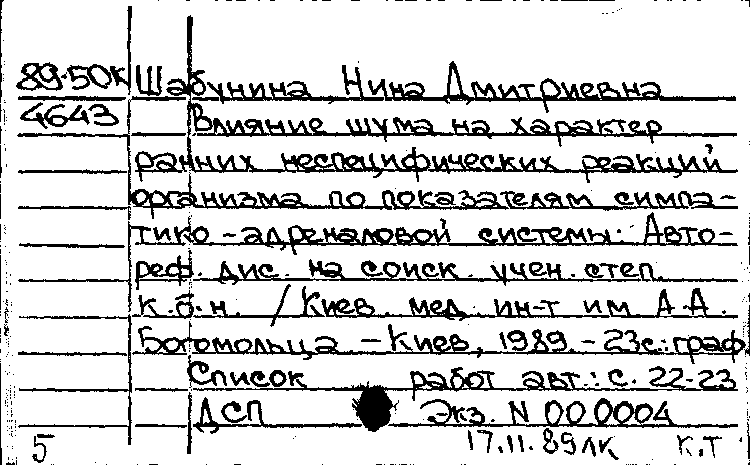 89-50к Шабунина Нина Дмитриевна
4643 Влияние шума на характер
ранних неспецифических реакций
организма по показателям симпа-
тико-адреналовой системы: Авто-
реф. дис. на соиск. учен. степ.
к.б.н. / Киев. мед. ин-т им. А.А.
Богомольца - Киев, 1989. - 23с.: граф.
Список работ авт.: с. 22-23
ДСП Экз. N 000004
5 17.11.89ЛК К.Т